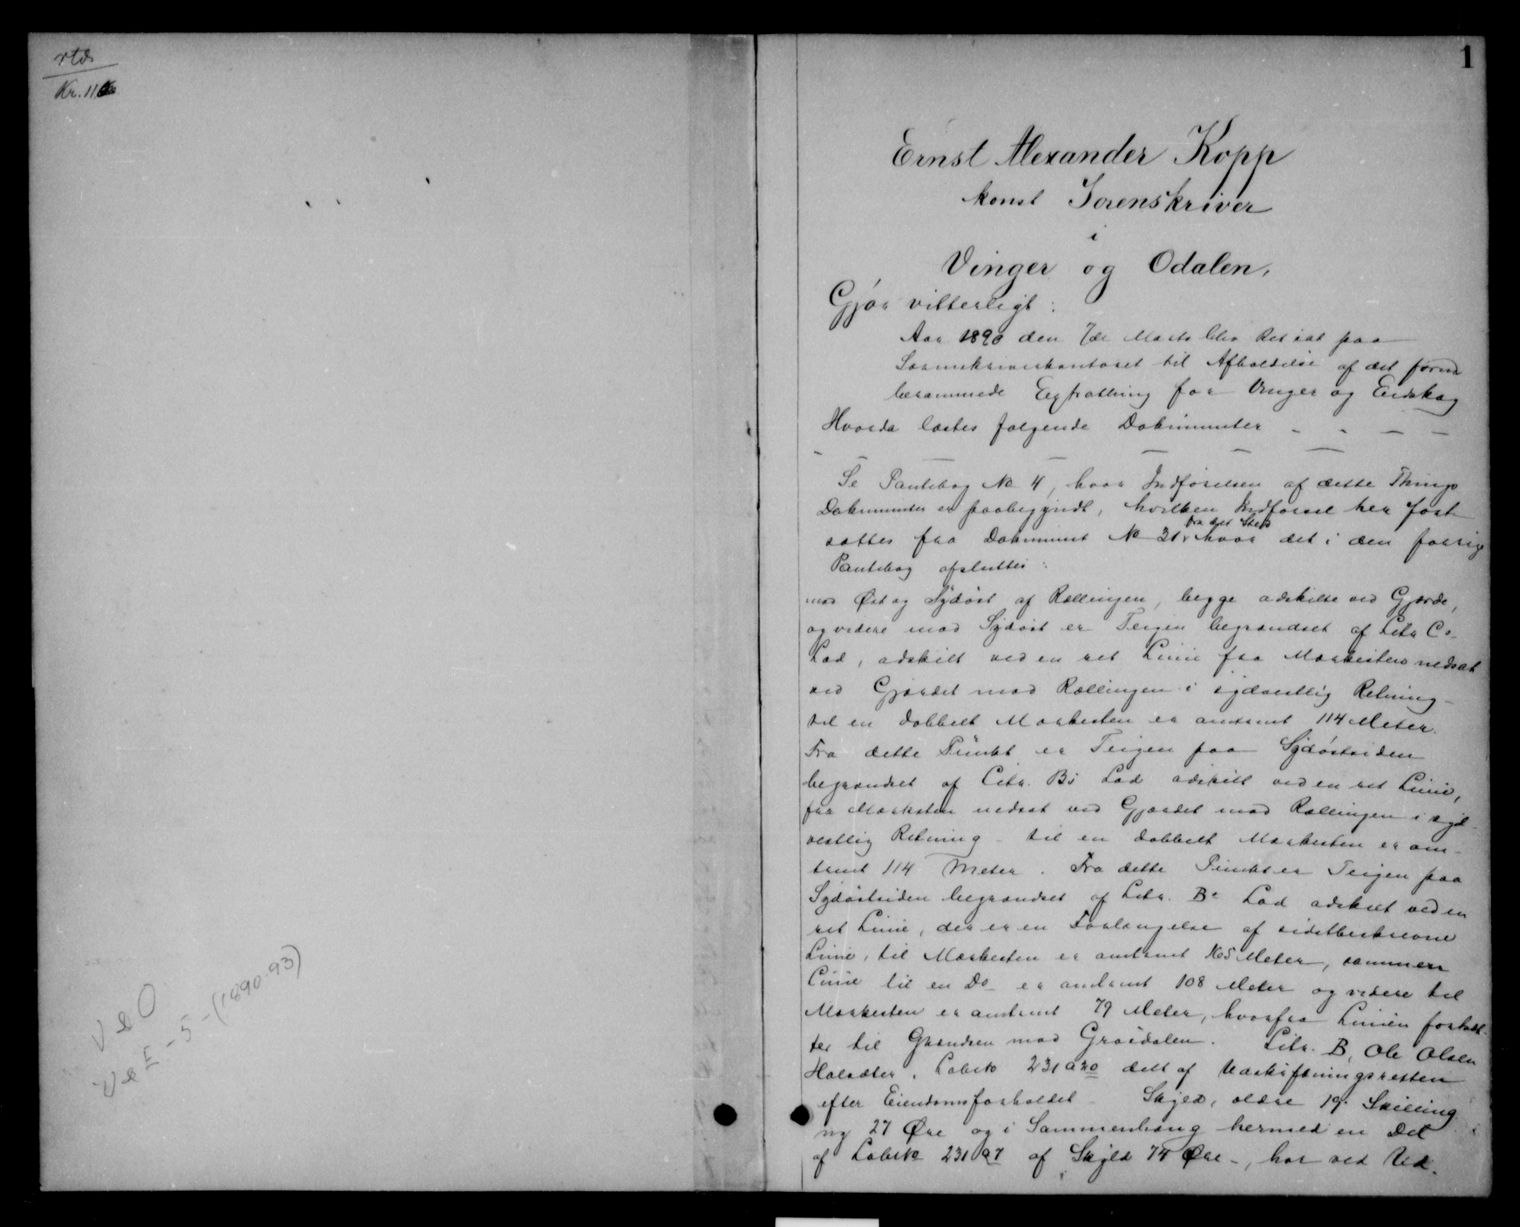 Kr. 11
1
Ernst Alexander Kopp
konst Sorenskriver
i
Vinger og Odalen,
Gjør vitterligt:
Aar 1890 den 7de Marts blev Ret sat paa
Sorenskriverkontoret til Afholdelse af det forud
berammede Extrathing for Vinger og Eidskog
Hvorda læstes følgende Dokumenter - - - -
Se Pantebog No 4, hvor Indførelsen af dette Things
Dokumenter er paabegyndt, hvilken Indførsel her fort
sættes fra Dokument No 31 fra det Sted hvor det i den forrige
Pantebog afsluttes:
mod Øst og Sydøst af Rællingen, begge adskilte ved Gjærde,
og videre mod Sydøst er Teigen begrændset af Litr. Cs
Lod, adskilt ved en ret Linie fra Markesten nedsat
ved Gjærdet mod Rællingen i sydvestlig Retning
til en dobbelt Markesten er omtrent 114 Meter.
Fra dette Punkt er Teigen paa Sydøstsiden
begrændset af Litr. Bs Lod adskilt ved en ret Linie,
fra Marksten nedsat ved Gjærdet mod Rællingen i syd-
vestlig Retning - til en dobbelt Markesten er om-
trent 114 Meter. Fra dette Punkt er Teigen paa
Sydøstsiden begrændset af Litr. Bs Lod adskilt ved en
ret Linie, der er en Forlængelse af sidstbeskrevne
Linie, til Markesten er omtrent 165 Meter, samme
Linie til en Do er omtrent 108 Meter og videre til
Markesten er omtrent 79 Meter, hvorfra Linien fortsæt-
ter til Grændsen mod Grøsdalen. Litr. B, Ole Olsen
Holsæter, Løbeno 231 a 20 delt af Udskiftningsretten
efter Eiendomsforholdet - Skyld, ældre 19 Skilling
ny 27 Øre og i Sammenhæng hermed en Del
af Løbeno 231 a 7 af Skyld 74 Øre -, har ved Ud-
V & O
V & E - 5 - (1890-93)